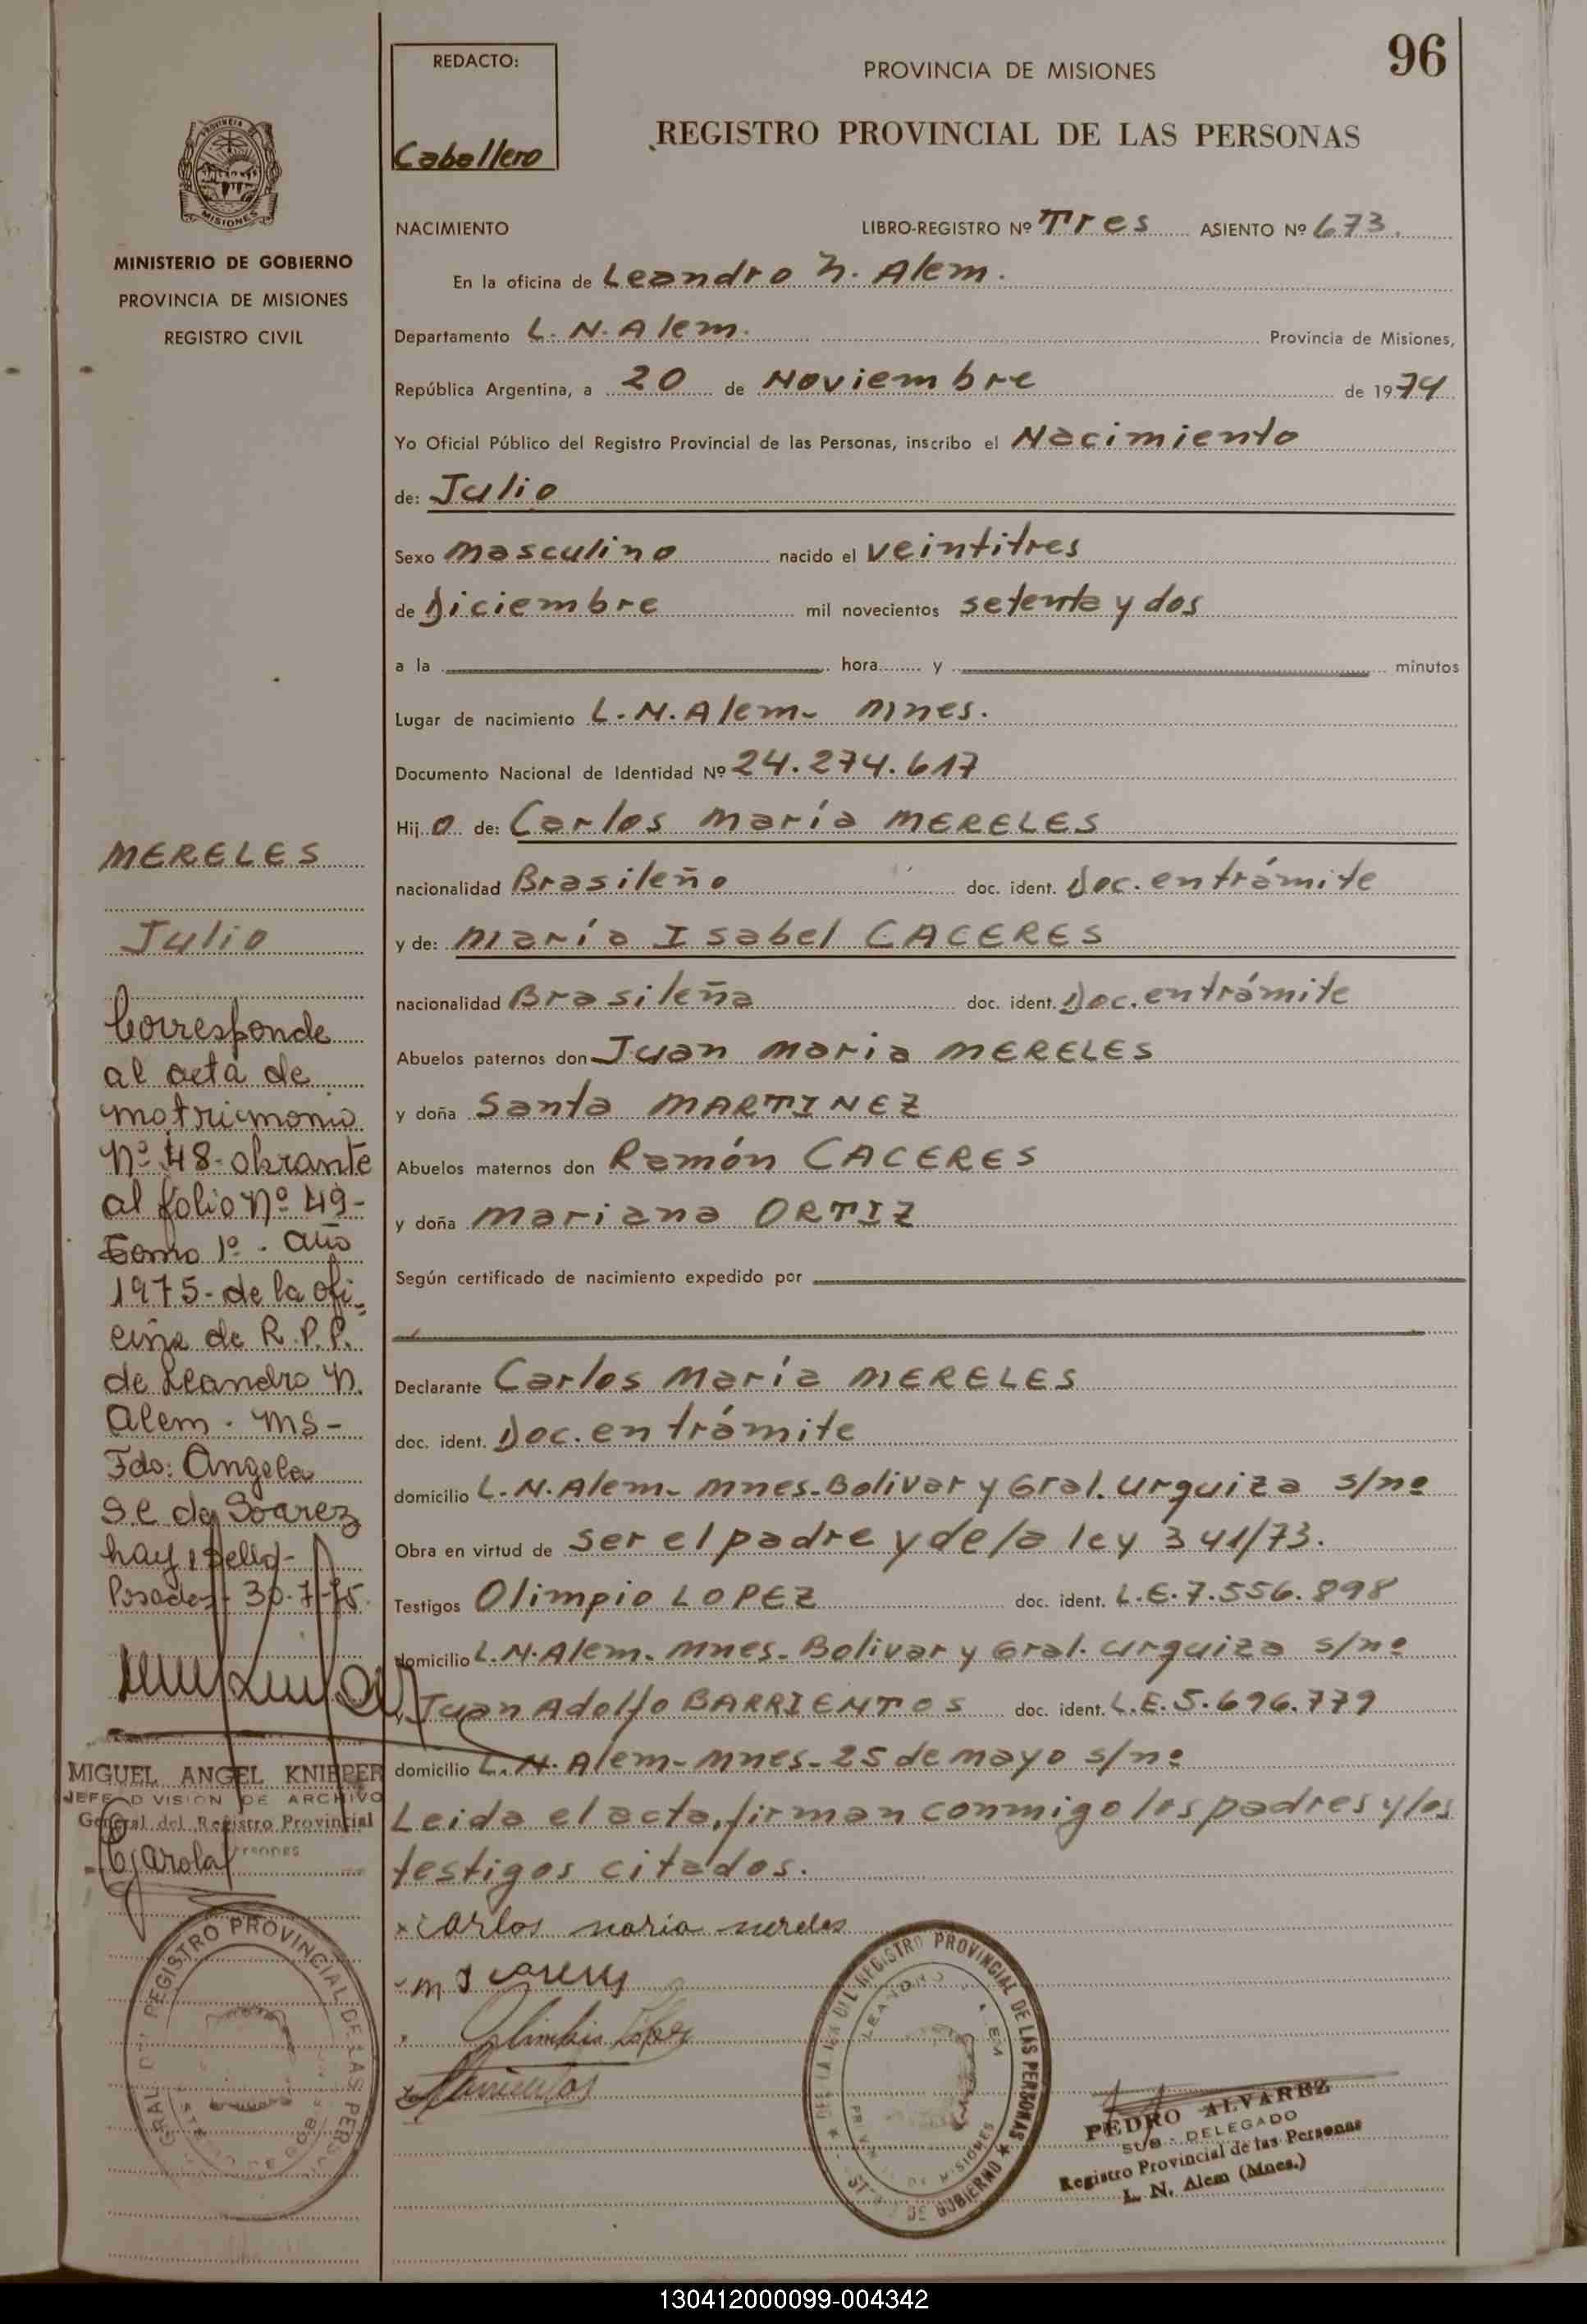 96
REDACTO:
Caballero
PROVINCIA DE MISIONES
REGISTRO PROVINCIAL DE LAS PERSONAS
PROVINCIA DE
MISIONES
MINISTERIO DE GOBIERNO
PROVINCIA DE MISIONES
REGISTRO CIVIL
NACIMIENTO LIBRO-REGISTRO Nº Tres ASIENTO Nº 673.
En la oficina de Leandro N. Alem.
Departamento L. N. Alem. Provincia de Misiones,
República Argentina, a 20 de Noviembre de 1974
Yo Oficial Público del Registro Provincial de las Personas, inscribo el Nacimiento
de: Julio
Sexo masculino nacido el veintitres
de Diciembre mil novecientos setenta y dos
a la hora y minutos
Lugar de nacimiento L. N. Alem- Mnes.
Documento Nacional de Identidad Nº 24.274.617
Hijo de: Carlos María MERELES
nacionalidad Brasileño doc. ident. Doc. en trámite
y de: María Isabel CACERES
nacionalidad Brasileña doc. ident. Doc. en trámite
Abuelos paternos don Juan Maria MERELES
y doña Santa MARTINEZ
Abuelos maternos don Ramón CACERES
y doña Mariana ORTIZ
Según certificado de nacimiento expedido por
Declarante Carlos María MERELES
doc. ident. Doc. en trámite
domicilio L. N. Alem- Mnes- Bolivar y Gral. Urquiza s/nº
Obra en virtud de ser el padre y de la ley 341/73.
Testigos Olimpio LOPEZ doc. ident. L.E. 7.556.898
domicilio L. N. Alem- Mnes- Bolivar y Gral. Urquiza s/nº
y Juan Adolfo BARRIENTOS doc. ident. L.E. 5.696.779
domicilio L. N. Alem- Mnes- 25 de mayo s/nº
Leida el acta, firman conmigo los padres y los
testigos citados.
x carlos maria mereles
Olimpio Lopez
Barrientos
MERELES
Julio
Corresponde
al acta de
matrimonio
Nº 48- obrante
al folio Nº 49-
Tomo 1º - año
1975- de la ofi-
cina de R.P.P.
de Leandro N.
Alem - Ms-
Fdo: Angela
S.C. de Soarez
hay 1 sello-
Posadas- 30-7-75.
MIGUEL ANGEL KNIEPER
JEFE DIVISION DE ARCHIVO
General del Registro Provincial
REGISTRO PROVINCIAL DE LAS PERSONAS
REGISTRO PROVINCIAL DE LAS PERSONAS
DE GOBIERNO
PEDRO ALVAREZ
SUB - DELEGADO
Registro Provincial de las Personas
L. N. Alem (Mnes.)
130412000099-004342